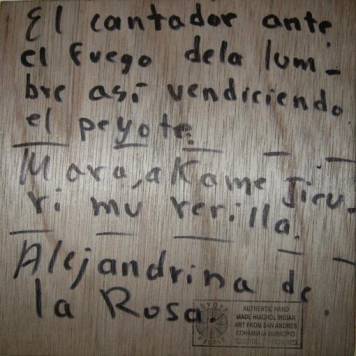 El cantador ante
el fuego dela lum-
bre así vendiciendo
el peyote.
Mara,aKame Jicu-
ri mu rerilla.
Alejandrina de
la Rosa.
AUTHENTIC HAND
MADE HUICHOL INDIAN
ART FROM SAN ANDRES
COHAMIATA MUNICIPIO